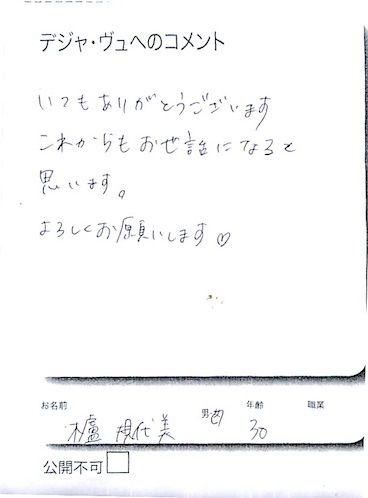 デジャ・ヴュへのコメント
いつもありがとうございます
これからもお世話になると
思います。
よろしくお願いします♡
お名前
男・女
年齢
職業
代美
30
公開不可